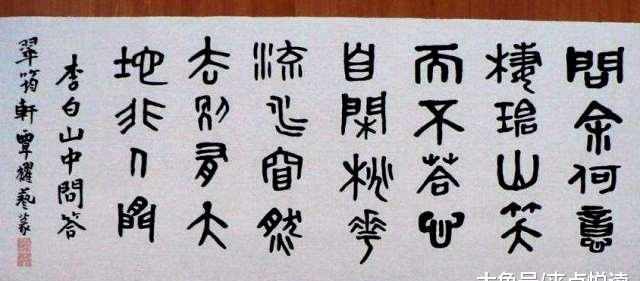 問余何意
棲碧山笑
而不答心
自閑桃花
流水窅然
去別有天
地非人間
李白山中問答
翠筠軒覃耀藝篆
大鱼号/来点悦读